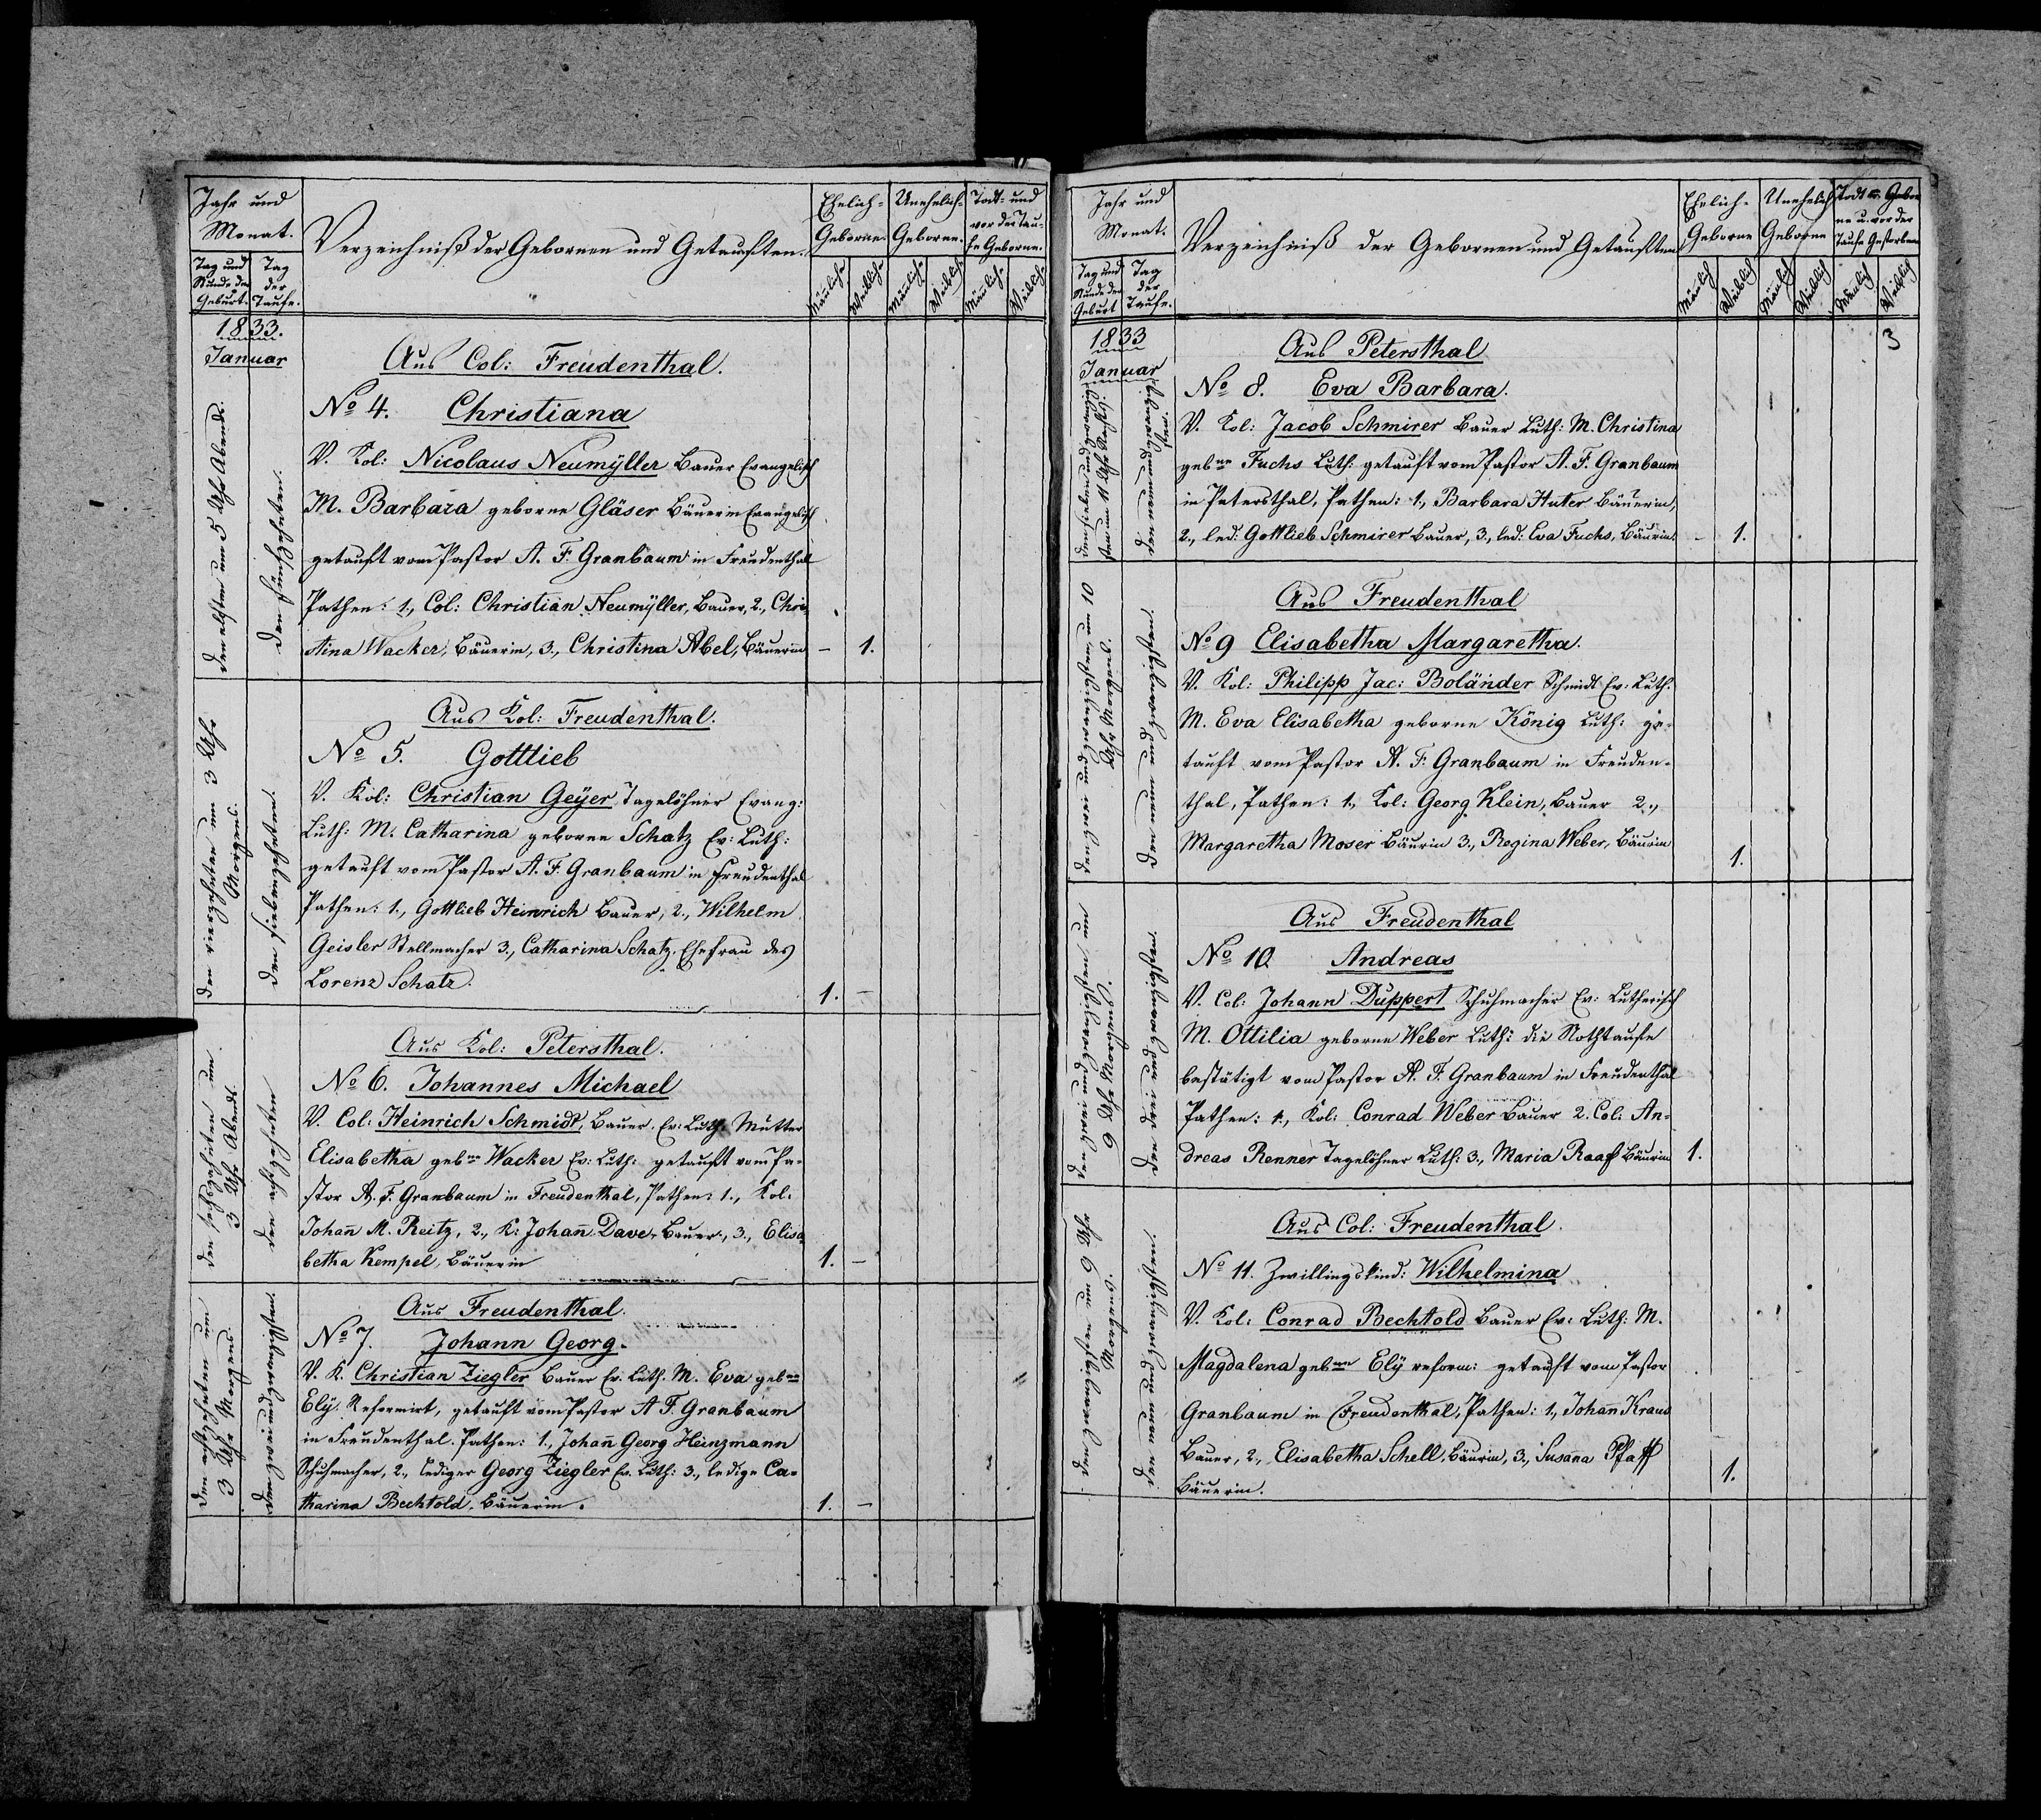 Jahr und
Monat.
Tag und
Stunde der
Geburt.
Tag
der
Taufe.
Verzeichniß der Gebornen und Getauften.
Ehelich-
Geborne.
Unehelich-
Geborne.
Todt- und
vor der Tau-
fe Geborne.
Mänlich-
Weiblich-
Mänlich-
Weiblich-
Mänlich-
Weiblich-
1833.
Januar
den elften um 5 Uhr Abends.
den fünfzehnten.
Aus Col: Freudenthal.
No 4. Christiana
V. Kol: Nicolaus Neumÿller Bauer Evangelisch
M. Barbara geborne Gläser Bäuerin Evangelisch
getauft vom Pastor A. F. Granbaum in Freudenthal
Pathen: 1., Col: Christian Neumÿller, Bauer, 2., Chri-
stina Wacker, Bäuerin, 3., Christina Abel, Bäuerin – 1.
den vierzehnten um 3 Uhr
Morgens.
den siebenzehnten.
Aus Kol: Freudenthal.
No 5. Gottlieb
V. Kol: Christian Geÿer, Tagelöhner Evang:
Luth: M. Catharina geborne Schatz Ev: Luth:
getauft vom Pastor A. F. Granbaum in Freudenthal
Pathen: 1., Gottlieb Heinrich Bauer, 2., Wilhelm
Geisler Stellmacher 3., Catharina Schatz, Ehefrau des
Lorenz Schatz. 1. –
den sechszehnten um
3 Uhr Abends.
den achtzehnten
Aus Kol: Petersthal.
No 6. Johannes Michael
V. Col: Heinrich Schmidt, Bauer. Ev: Luth. Mutter
Elisabetha gebne Wacker Ev: Luth: getauft vom Pa-
stor A. F. Granbaum in Freudenthal, Pathen: 1., Kol:
Johañ M. Reitz, 2., K: Johañ Dave, Bauer, 3., Elisa-
betha Kempel, Bäuerin 1. –
den achtzehnten um
3 Uhr Morgens.
den zweiundzwanzigsten.
Aus Freudenthal.
No 7. Johann Georg.
V. K. Christian Ziegler Bauer Ev. Luth. M. Eva gebne
Elÿ. Reformirt, getauft vom Pastor A F. Granbaum
in Freudenthal. Pathen: 1., Johañ Georg Heinzmann
Schuhmacher, 2., lediger Georg Ziegler Ev. Luth: 3., ledige Ca-
tharina Bechtold, Bäuerin. 1. –
Jahr und
Monat.
Tag und
Stunde der
Geburt
Tag
der
Taufe.
Verzeichniß der Gebornen und Getauften
Ehelich-
Geborne
Unehelich
Geborne
Todt Gebor
ne u. vor der
Taufe Gestorbene
Mänlich
Weiblich
Mänlich
Weiblich
Mänlich
Weiblich
3
1833
Januar
Aus Petersthal
No 8. Eva Barbara.
V. Kol: Jacob Schmirer Bauer Luth: M. Christina
gebne Fuchs Luth: getauft vom Pastor A. F. Granbaum
in Petersthal, Pathen: 1., Barbara Huter Bäuerin,
2., led: Gottlieb Schmirer Bauer, 3., led: Eva Fuchs, Bäurin. – 1.
den dreiundzwanzigsten um 10
Uhr Morgens.
den neunundzwanzigsten.
Aus Freudenthal
No 9 Elisabetha Margaretha.
V. Kol: Philipp Jac: Boländer Schmidt Ev: Luth.
M. Eva Elisabetha geborne König Luth: ge-
tauft vom Pastor A. F. Granbaum in Freuden-
thal, Pathen: 1., Kol: Georg Klein, Bauer 2.,
Margaretha Moser Bäurin 3., Regina Weber, Bäurin 1.
den zweiundzwanzigsten um
6 Uhr Morgens.
den dreiundzwanzigsten
Aus Freudenthal
No 10. Andreas
V. Col: Johann Duppert Schuhmacher Ev: Lutherisch
M. Ottilia geborne Weber Luth: die Nothtaufe
bestätigt vom Pastor A. F. Granbaum in Freudenthal
Pathen: 1., Kol: Conrad Weber Bauer 2. Col: An-
dreas Renner Tagelöhner Luth: 3., Maria Raaf Bäurin 1.
den zwanzigsten um 6 Uhr
Morgens.
den neunundzwanzigsten.
Aus Col: Freudenthal.
No 11. Zwillingskind: Wilhelmina
V. Kol: Conrad Bechtold Bauer Ev: Luth: M.
Magdalena gebne Elÿ reform: getauft vom Pastor
Granbaum in Freudenthal, Pathen: 1., Johañ Kraus
Bauer, 2., Elisabetha Schell, Bäurin, 3., Susaña Pfaff
Bäuerin. 1.